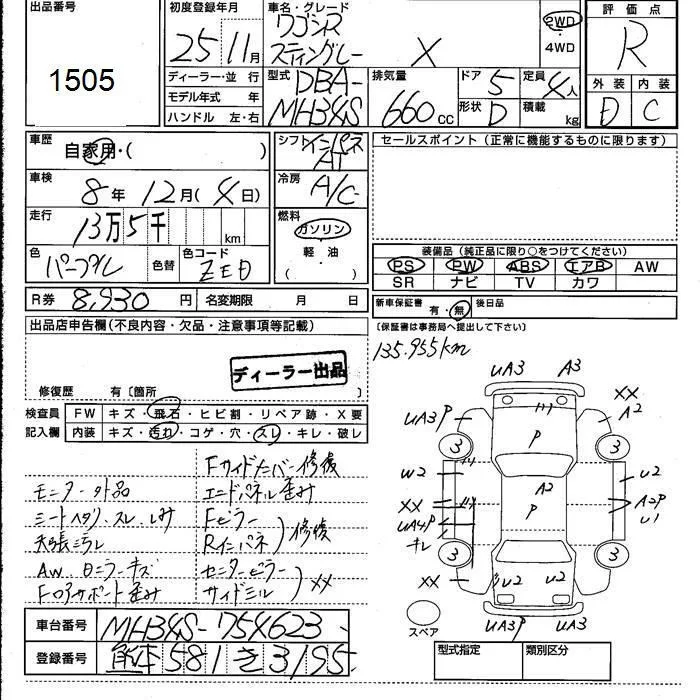 出品番号
1505
初度登録年月
25年11月
車名・グレード
ワゴンR
スティングレー X
2WD
・
4WD
評価点
R
外装 内装
D C
ディーラー・並行
モデル年式 年
ハンドル 左・右
型式 DBA-
MH34S
排気量
660cc
ドア 5
定員 4人
形状 D
積載 kg
車歴
自家用・( )
シフト インパネ
AT
セールスポイント (正常に機能するものに限ります)
車検
8年12月(4日)
冷房
A/C
走行
13万5千 km
燃料
ガソリン
・
軽油
( )
色
パープル
色替
色コード
ZED
装備品 (純正品に限り○をつけてください)
PS PW ABS エアB AW
SR ナビ TV カワ
R券 8,930円 名変期限 月 日
新車保証書 有・無 後日品
(保証書は事務局へ提出して下さい)
出品店申告欄(不良内容・欠品・注意事項等記載)
135.955km
ディーラー出品
修復歴 有〔箇所 〕
検査員 FW キズ・飛石・ヒビ割・リペア跡・X要
記入欄 内装 キズ・汚れ・コゲ・穴・スレ・キレ・破レ
Fサイドメンバー修復
モニター外品 エンドパネル歪み
シートヘタリ、スレ、しみ Fピラー
天張汚れ Rインパネ 修復
AW、ミラーキズ センターピラー
Fロアサポート歪み サイドシル XX
車台番号 MH34S-754623
登録番号 熊本581き3195
UA3 A3
XX
A2
UA3P
P
3 3
W2 A2 U2
XX P A2P
UA4P U1
キレ
3 3
XX U2 U2
スペア UA3P UA3
型式指定 類別区分